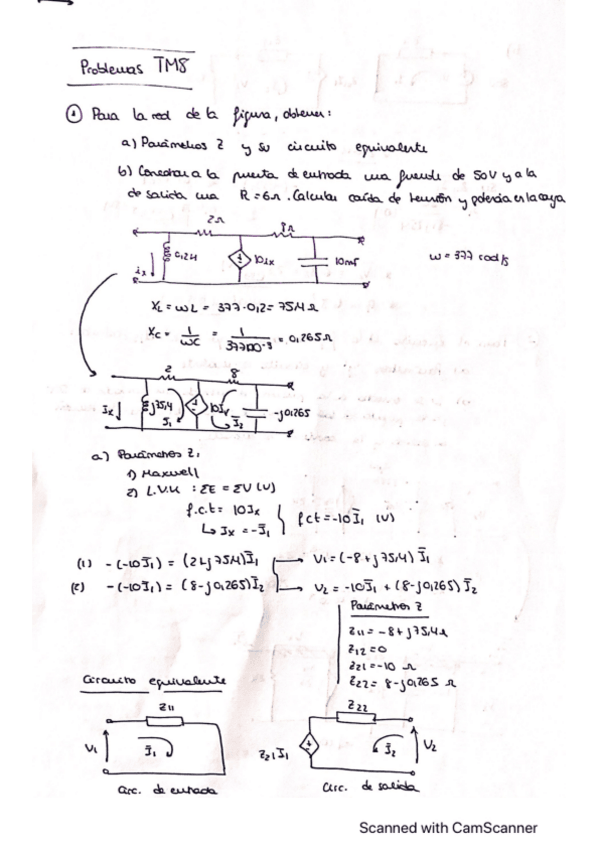 Problemas TM8
① Para la red de la figura, obtener:
a) Parámetros Z y su circuito equivalente
b) Conectar a la puerta de entrada una fuente de 50V y a la
de salida una R=6Ω. Calcular caída de tensión y potencia en la carga
2Ω 8Ω
0,2H 10ix 10mF
ix
ω = 377 rad/s
XL = ωL = 377·0,12 = 75,4 Ω
XC = 1/ωC = = 0,265Ω
2 8
Ix j75,4 10Ix -j0,265
I1 I2
a) Parámetros Z,
1) Maxwell
2) L.V.K : ΣE = ΣU (V)
f.c.t = 10Ix
↳ Ix = -I̅1
fct = -10 I̅1 (V)
(1) -(-10I̅1) = (2+j75,4)I̅1 → V1 = (-8+j75,4) I̅1
(2) -(-10I̅1) = (8-j0,265)I̅2 → V2 = -10I̅1 + (8-j0,265)I̅2
Parámetros Z
Z11 = -8+j75,4Ω
Z12 = 0
Z21 = -10 Ω
Z22 = 8-j0,265 Ω
Circuito equivalente
Z11 Z22
V1 I̅1 Z21 I̅1 I̅2 V2
Circ. de entrada Circ. de salida
Scanned with CamScanner